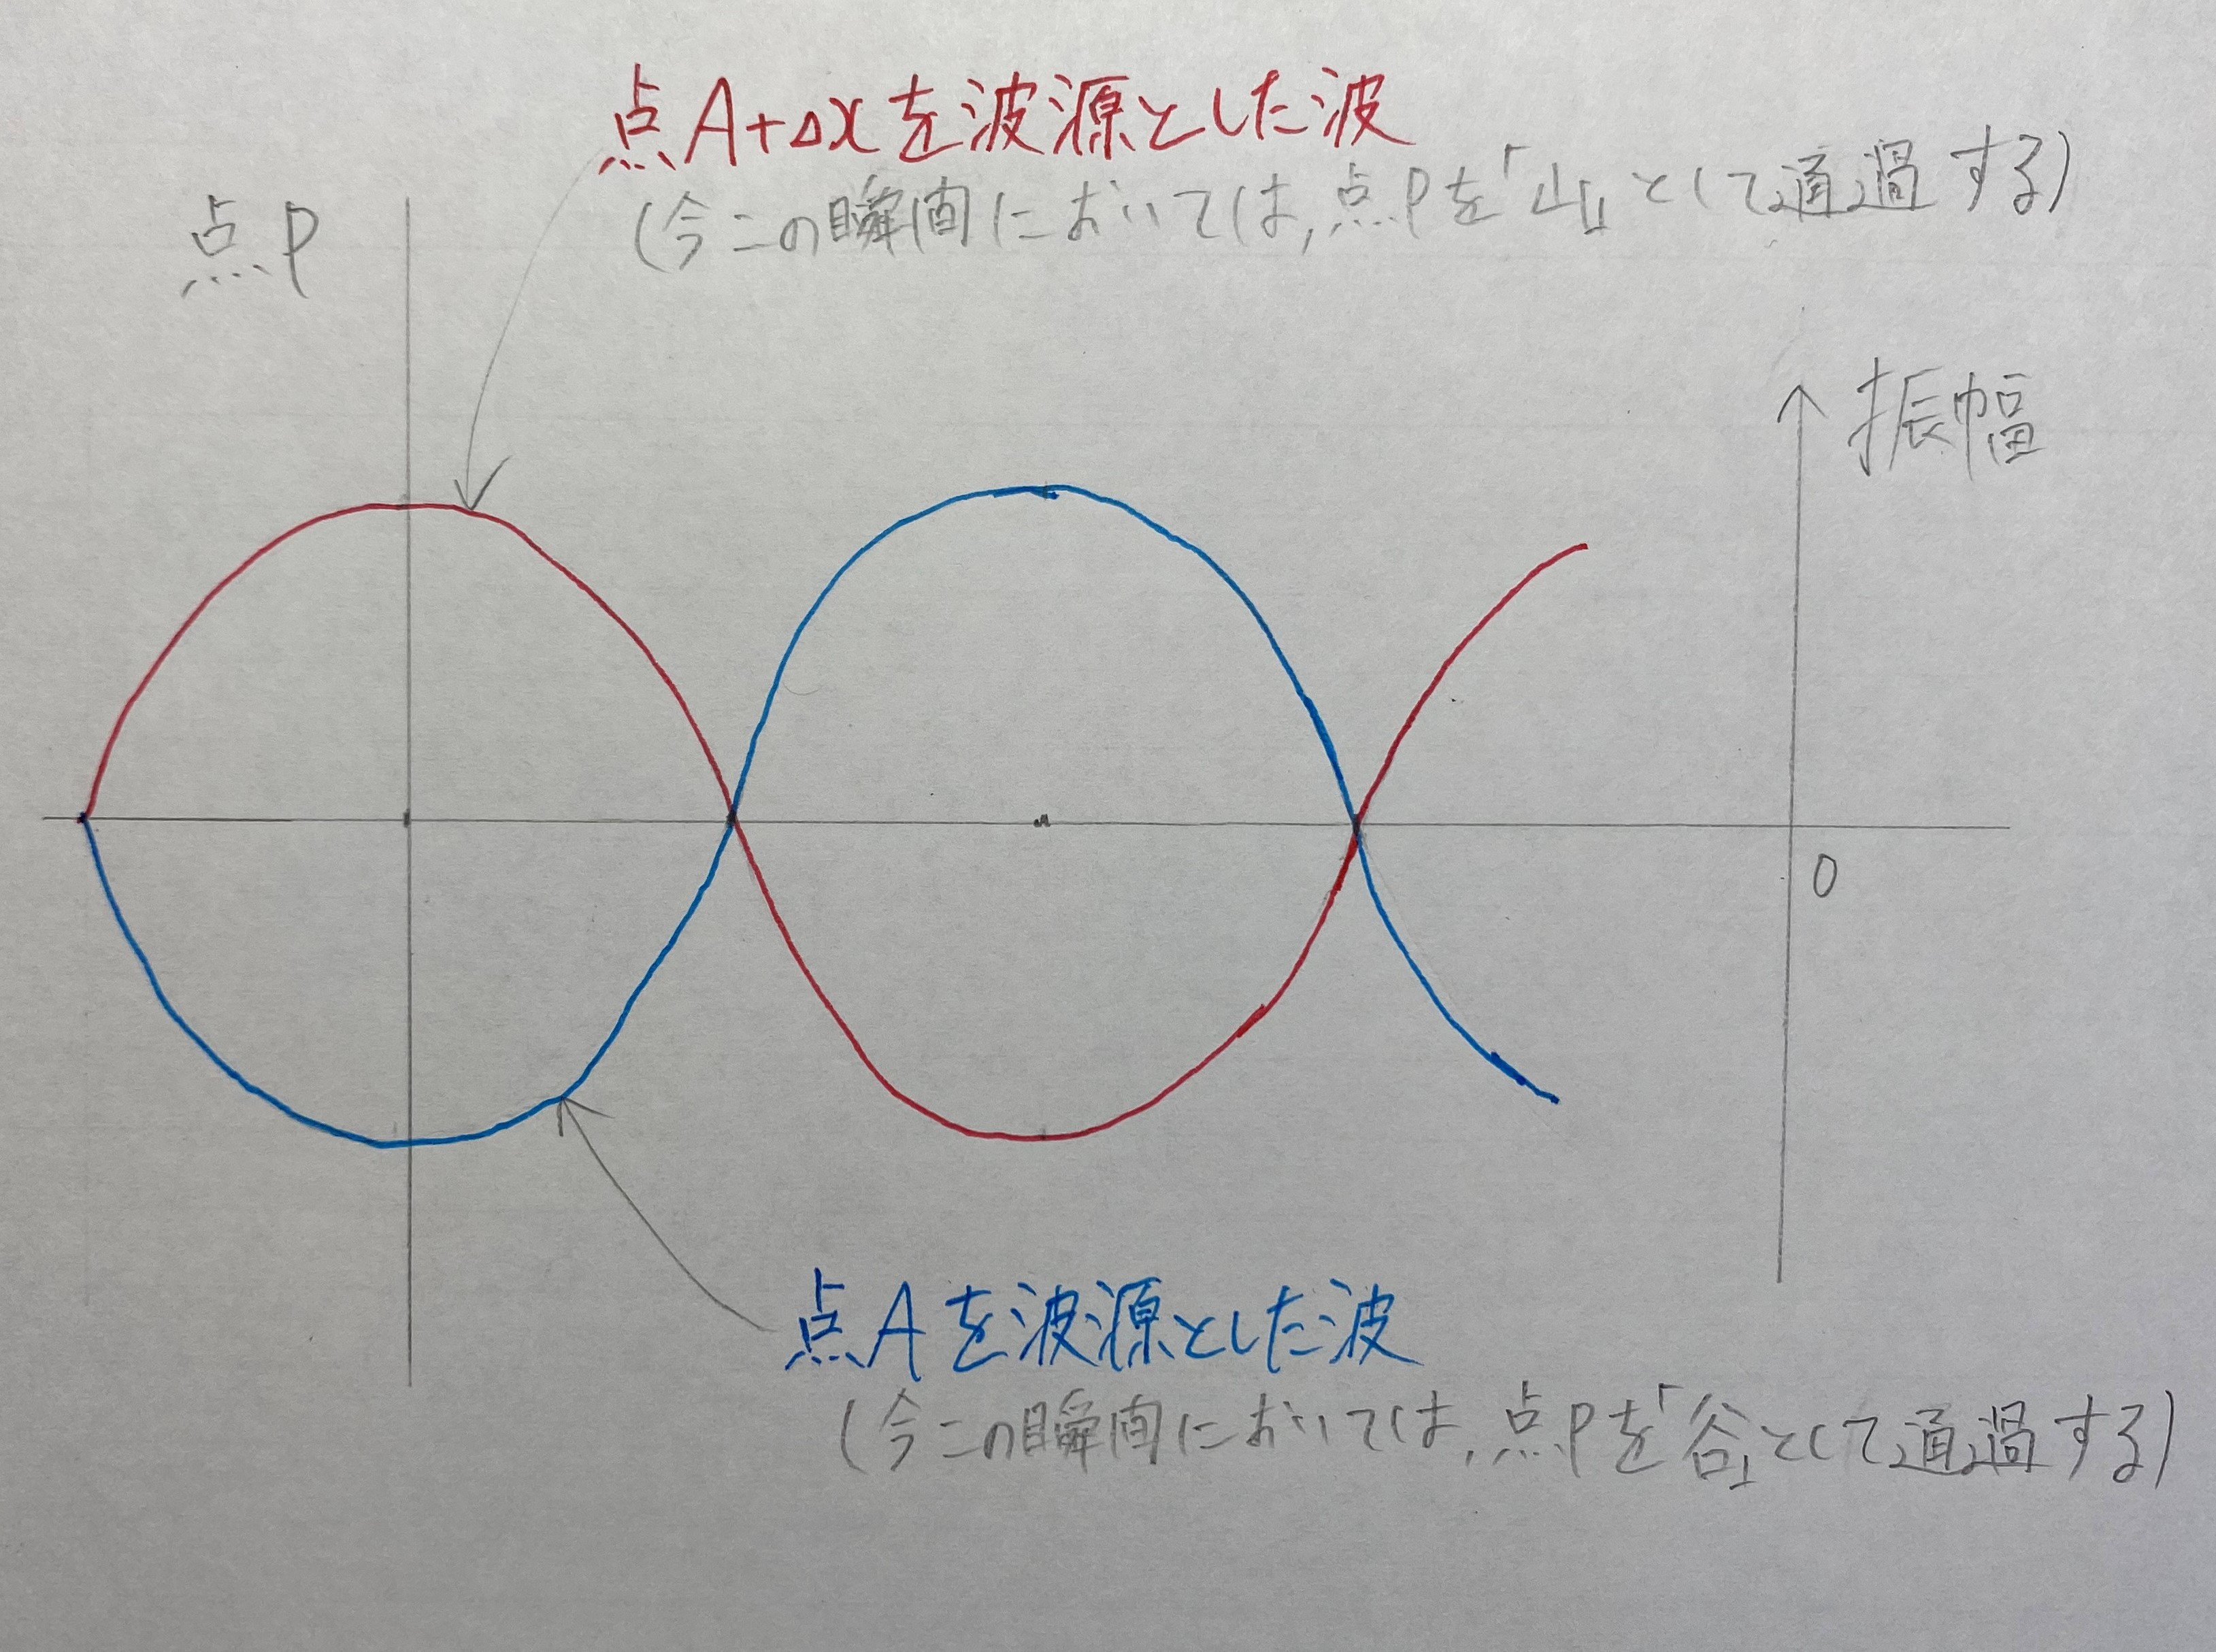 点A+Δxを波源とした波
(今この瞬間においては,点Pを「山」として通過する)
点P
振幅
0
点Aを波源とした波
(今この瞬間においては,点Pを「谷」として通過する)